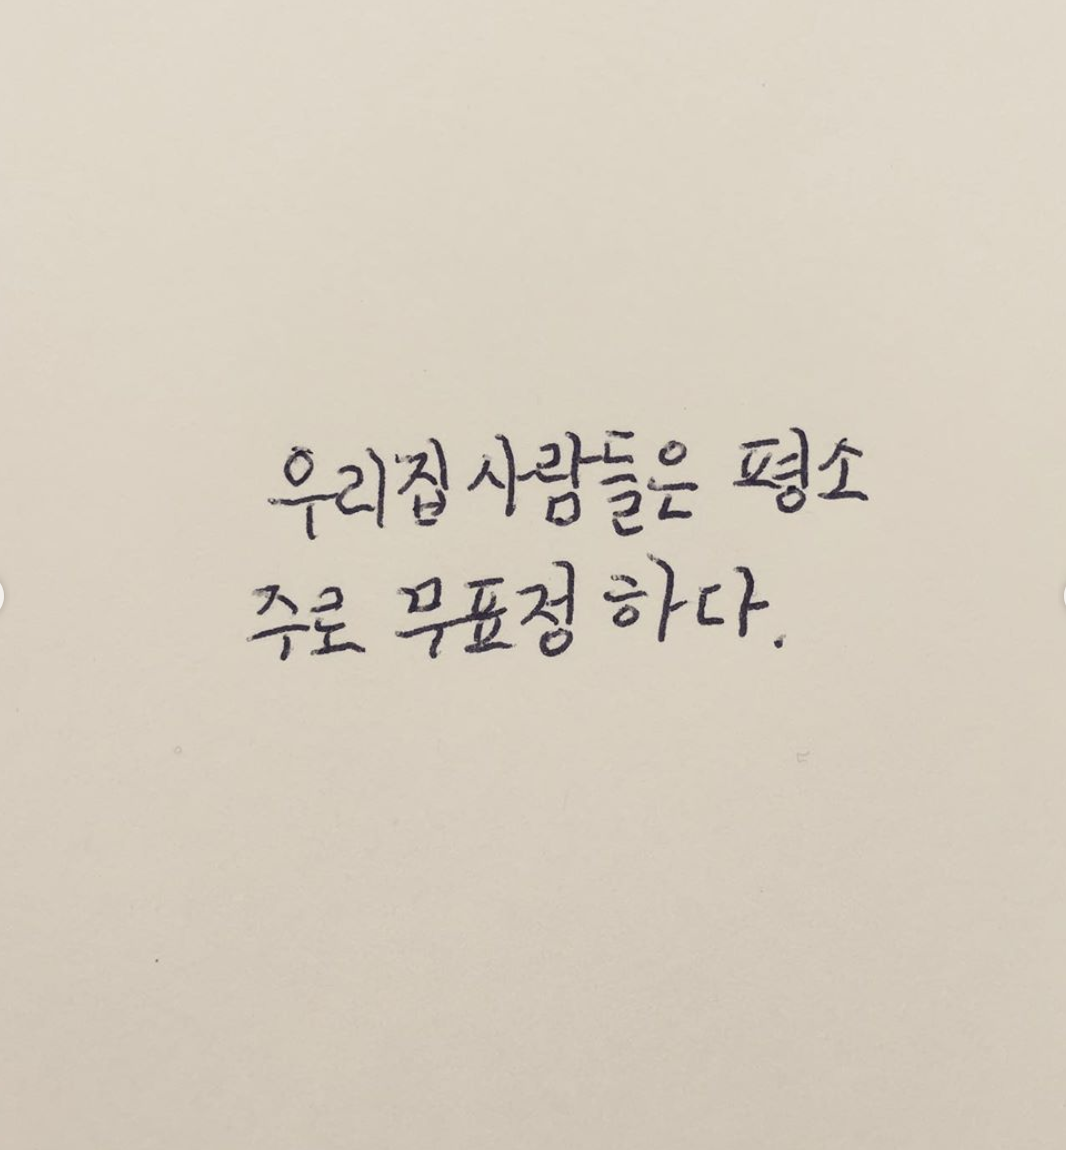 우리집 사람들은 평소
주로 무표정 하다.